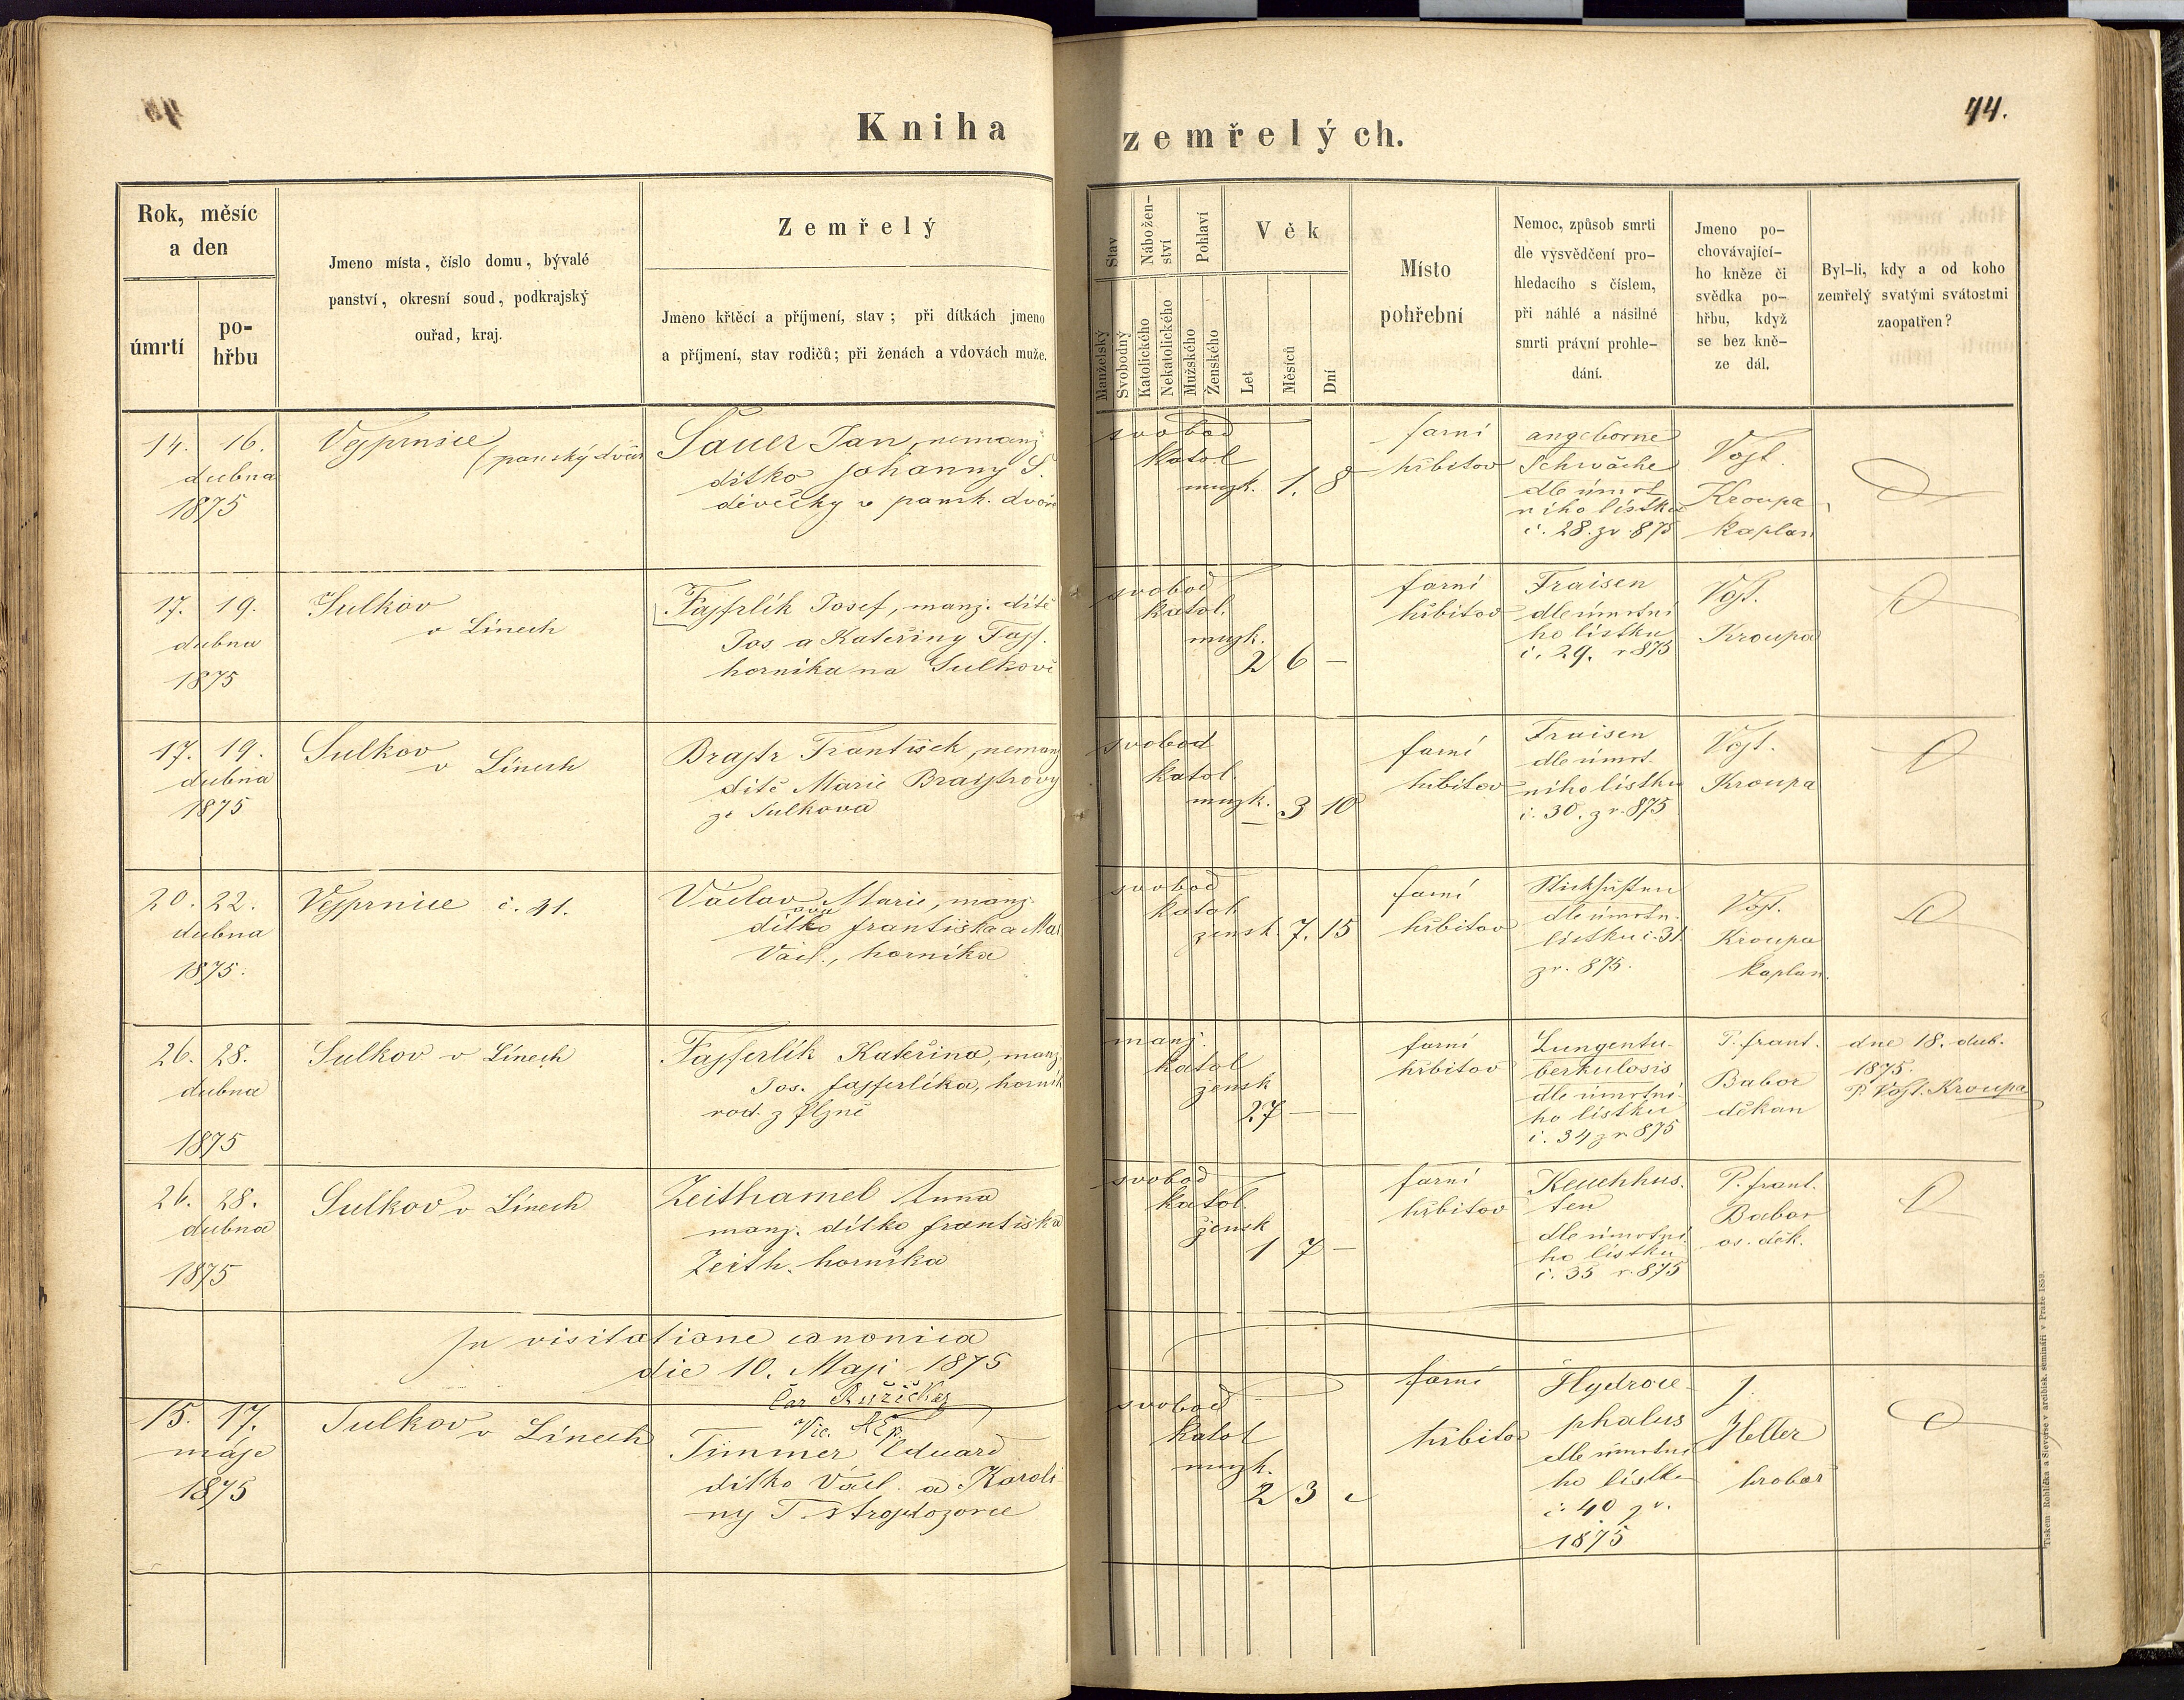 44.
Kniha zemřelých.
Rok, měsíc
a den
úmrtí
po-
hřbu
Jméno místa, číslo domu, bývalé
panství, okresní soud, podkrajský
ouřad, kraj.
Zemřelý
Jméno křtěcí a příjmení, stav; při dítkách jmeno
a příjmení, stav rodičů; při ženách a vdovách muže.
Stav
Manželský
Svobodný
Nábožen-
ství
Katolického
Nekatolického
Pohlaví
Mužského
Ženského
Věk
Let
Měsíců
Dní
Místo
pohřební
Nemoc, způsob smrti
dle vysvědčení pro-
hledacího s číslem,
při náhlé a násilné
smrti právní prohle-
dání.
Jmeno po-
chovávající-
ho kněze či
svědka po-
hřbu, když
se bez kně-
ze dál.
Byl-li, kdy a od koho
zemřelý svatými svátostmi
zaopatřen?
14. 16.
dubna
1875
Vejprnice
(panský dvůr
Sauer Jan, nemanž
dítko Johanny S.
děvečky v pansk. dvoře
svobod
katol
mužk. 1. 8
farní
hřbitov
angeborne
Schwäche
dle úmrt
ního lístku
č. 28. z r. 875
Vojt.
Kroupa
kaplan
17. 19.
dubna
1875
Sulkov
v Línech
Fajfrlík Josef, manž. dítě
Jos. a Kateřiny Fajf.
horníka na Sulkově
svobod
katol.
mužk.
2 6 —
farní
hřbitov
Fraisen
dle úmrtní
ho lístku
č. 29. r 875
Vojt.
Kroupa
17. 19.
dubna
1875
Sulkov
v Línech
Brajtr František, nemanž
dítě Marie Brajtrovy
ze Sulkova
svobod
katol.
mužk. — 3 10
farní
hřbitov
Fraisen
dle úmrt.
ního lístku
č. 30. z r. 875
Vojt.
Kroupa
20. 22.
dubna
1875.
Vejprnice č. 41.
Václav Marie, manž.
ova
dítko Františka a Mar
Václ., horníka
svobod
katol
žensk. 7. 15
farní
hřbitov
Stickhusten
dle úmrtn.
lístku č. 31
z r. 875.
Vojt.
Kroupa
kaplan.
26. 28.
dubna
1875
Sulkov v Línech
Fajferlík Kateřina, manž.
Jos. Fajferlíka, horník
rod. z Plzně
manž.
katol
žensk
27 — —
farní
hřbitov
Lungentu-
berkulosis
dle úmrtní-
ho lístku
č. 34 z r 875
P. Frant.
Babor
děkan
dne 18. dub.
1875.
P. Vojt. Kroupa
26. 28.
dubna
1875
Sulkov v Línech
Zeithamel Anna
manž. dítko Františka
Zeith. horníka
svobod
katol.
žensk
1 7 —
farní
hřbitov
Keuchhus-
ten
dle úmrtní
ho lístku
č. 35 r. 875
P. Frant.
Babor
os. děk.
In visitatione canonica
die 10. Maji 1875
Růžička
Vic.
15. 17.
máje
1875
Sulkov v Línech
Timmer Eduard
dítko Václ. a Karoli
ny T. strojdozorce
svobod
katol
mužk.
2 3
farní
hřbitov
Hydroce-
phalus
dle úmrtní
ho lístku
č. 40 z r.
1875
J.
Heller
hrobař
Tiskem Rohlíčka a Sieverse v arcibisk. semináři v Praze 1859.